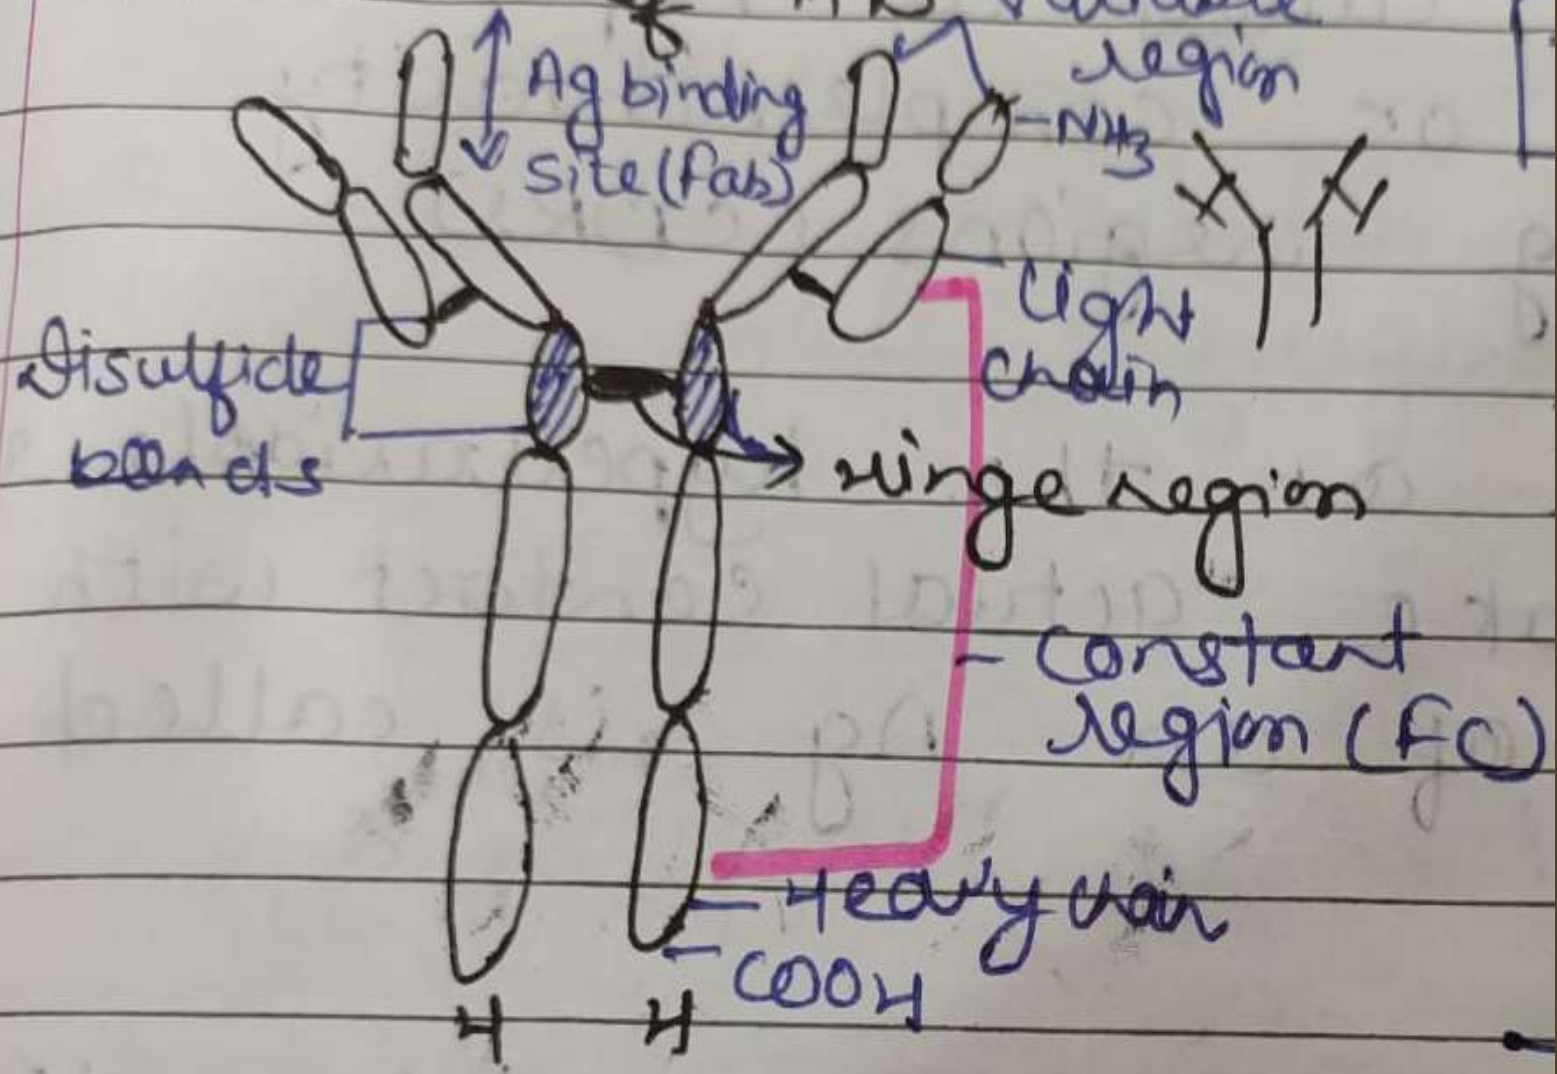 region
Ag binding
site (Fab)
-NH3
Light
chain
Disulfide
bonds
Hinge region
- constant
region (FC)
- Heavy chain
- COOH
H H